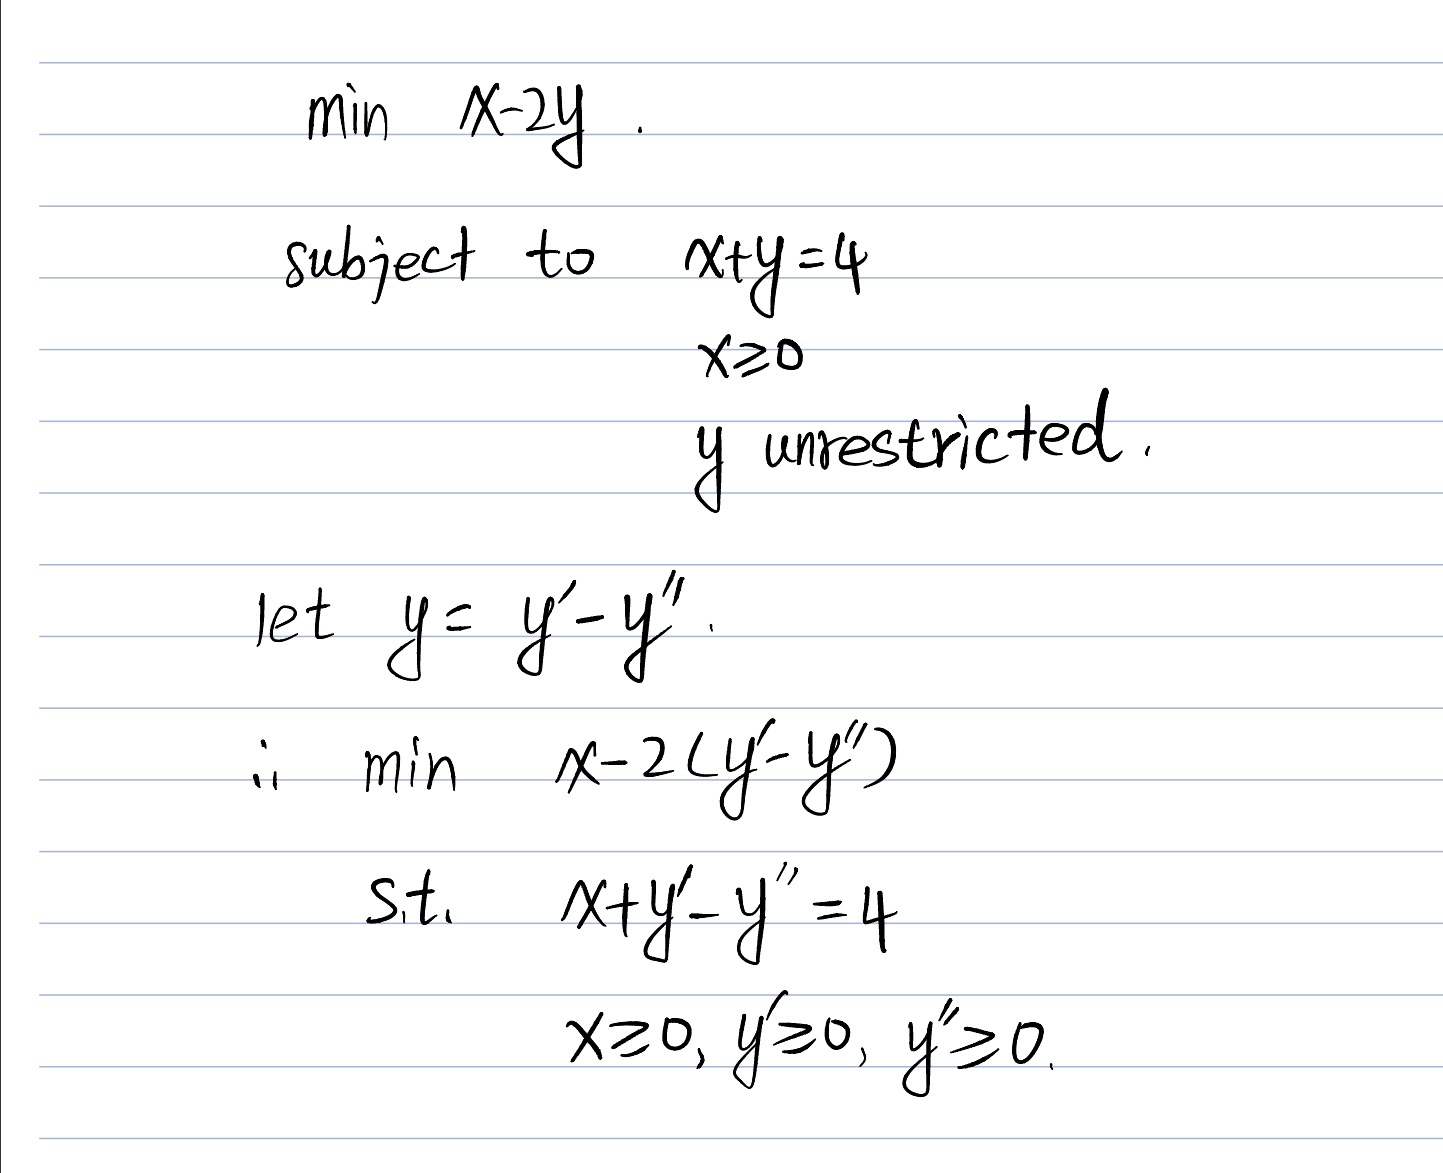 min x-2y.
subject to x+y=4
x≥0
y unrestricted.
let y= y′-y″.
∴ min x-2(y′-y″)
s.t. x+y′-y″=4
x≥0, y′≥0, y″≥0.